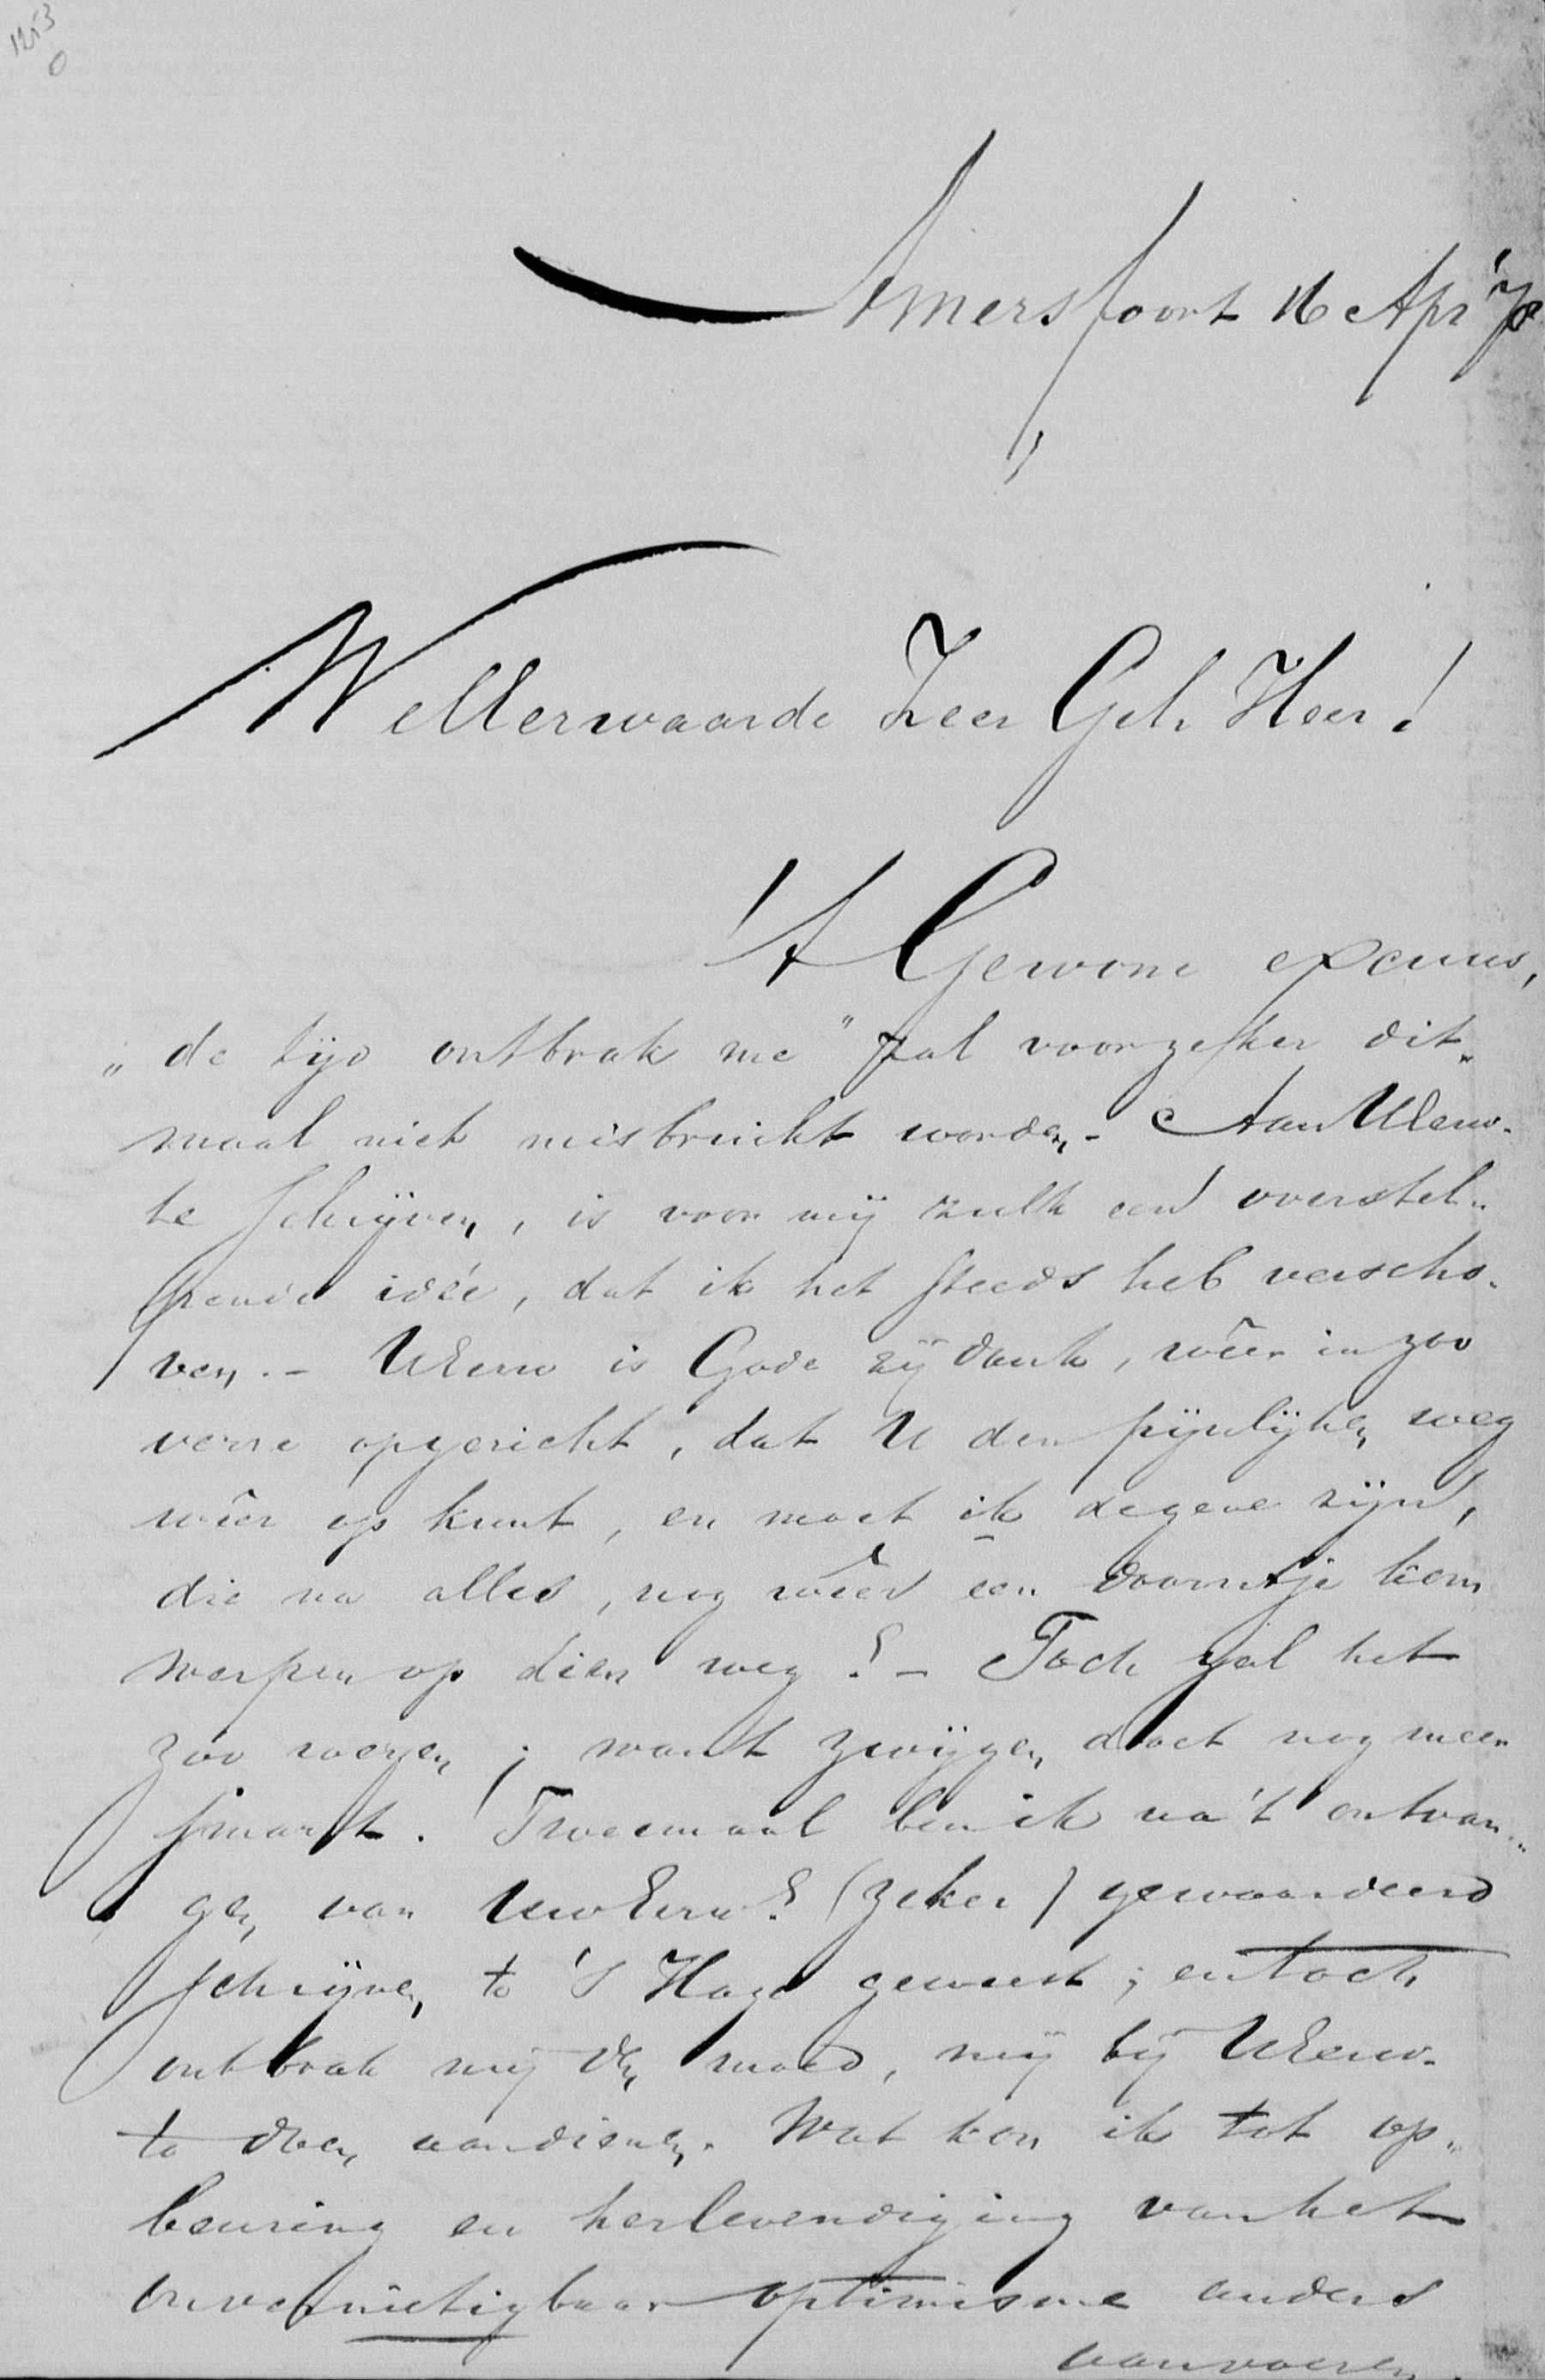 1253
0
Amersfoort 16 Apr '78
WelEerwaarde Zeer Gel. Heer!
't Gewone excuus,
„de tijd ontbrak me" zal voorzeker dit„
maal niet misbruikt worden. - Aan UEerw.
te schrijven, is voor mij zulk een overstel„
pende idée, dat ik het steeds heb verscho„
ven. - UEerw is Gode zij dank, wêer in zoo
verre opgericht, dat U den pijnlijken weg
wêer op kunt, en moet ik degene zijn,
die na alles, nog wêer een doorntje kom
werpen op dien weg? - Toch zal het
zoo wezen; want zwijgen doet nog meer
smart. Tweemaal ben ik na 't ontvan„
gen van UwEerw.s (zeker) gewaardeerd
schrijven te 's Hage geweest; en toch
ontbrak mij den moed, mij bij UEerw.
te doen aandienen. Wat kon ik tot op„
beuring en herlevendiging van het
onvernietigbaar optimisme anders
aanvoeren